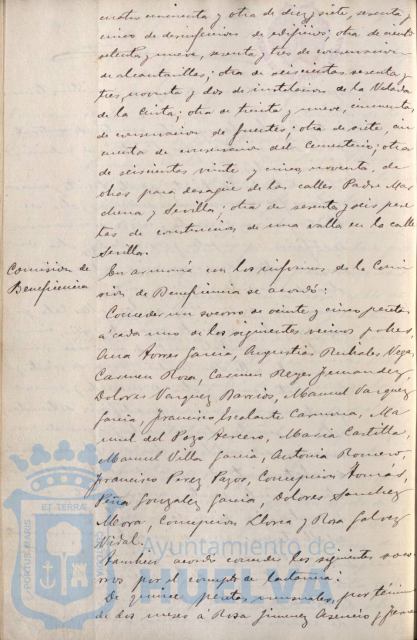 cuatro cincuenta y otra de diez y siete, sesenta y
cinco de desinfeccion de edificios; otra de ciento
setenta y nueve, sesenta y tres de conservacion
de alcantarillas; otra de seiscientas sesenta y
tres, noventa y dos de instalacion de la Velada
de la Cinta; otra de treinta y nueve, cincuenta
de conservacion de fuentes; otra de siete, cin
cuenta de conservacion del Cementerio; otra
de seiscientas veinte y cinco, noventa, de
obras para desagüe de las calles Padre Mar
chena y Sevilla; otra de sesenta y seis pese
tas de construccion de una valla en la calle
Sevilla.
Comision de
Beneficencia
En armonia con los informes de la Comi
sion de Beneficencia se acordó:
Conceder un socorro de veinte y cinco pesetas
á cada uno de los siguientes vecinos pobres,
Ana Torres Garcia, Augustias Rubiales Vega,
Carmen Rosa, Carmen Reyes Fernandez,
Dolores Vazquez Barrios, Manuel Vazquez
Garcia, Francisco Escalante Carmona, Ma
nuel del Pozo, Maria Castilla,
Manuel Villa Garcia, Antonia Romero,
Francisco Perez Pazos, Concepcion Tomas,
Peña Gonzalez Garcia, Dolores Sanchez
Mora, Concepcion Llorca y Rosa Galvez
Vidal.
Tambien acordó conceder los siguientes soco
rros por el concepto de lactancia:
De quince pesetas mensuales, por término
de dos meses á Rosa Jimenez Asencio, y
PORTUS MARIS
ET TERRÆ
Ayuntamiento de